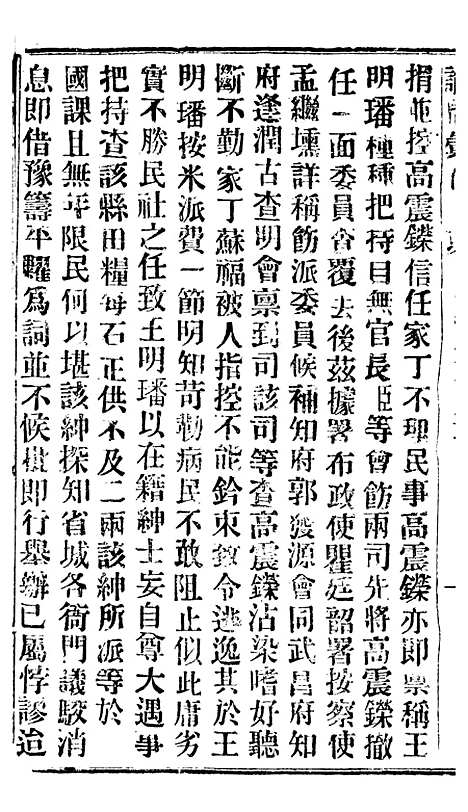 捐並控高震鑅信任家丁不理民事高震鑅亦即稟稱王
明璠種種把持目無官長臣等會飭兩司先將高震鑅撤
任一面委員查覆去後茲據署布政使瞿廷韶署按察使
孟繼壎詳稱飭派委員候補知府郭發源會同武昌府知
府逢潤古查明會稟到司該司等查高震鑅沾染嗜好聽
斷不勤家丁蘇福被人指控不能鈐束致令逃逸其於王
明璠按米派費一節明知苛勒病民不敢阻止似此庸劣
實不勝民社之任致王明璠以在籍紳士妄自尊大遇事
把持查該縣田糧每石正供不及二兩該紳所派等於
國課且無年限民何以堪該紳探知省城各衙門議駁消
息即借豫籌平糶為詞並不候批即行舉辦已屬悖謬迨